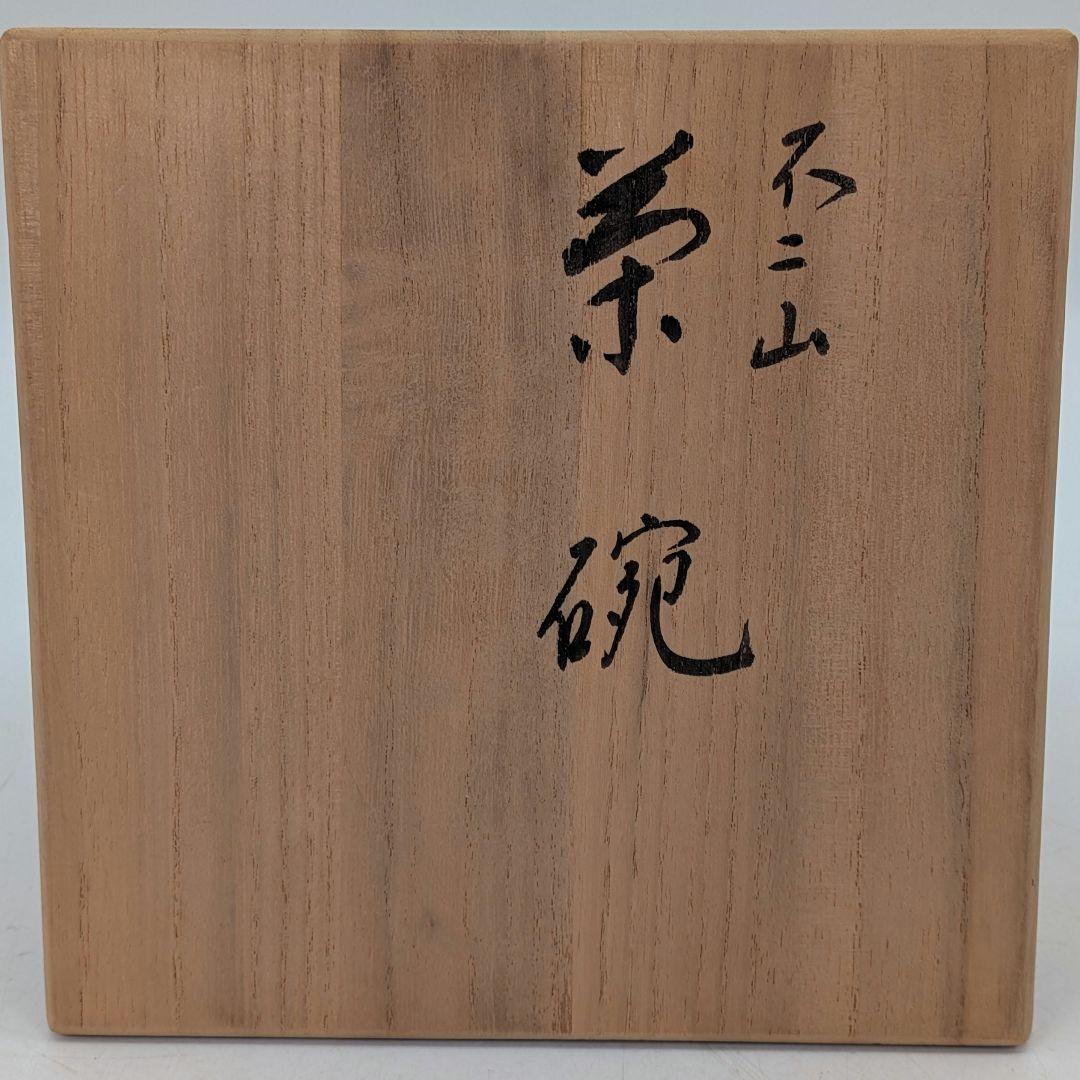 不二山
茶碗